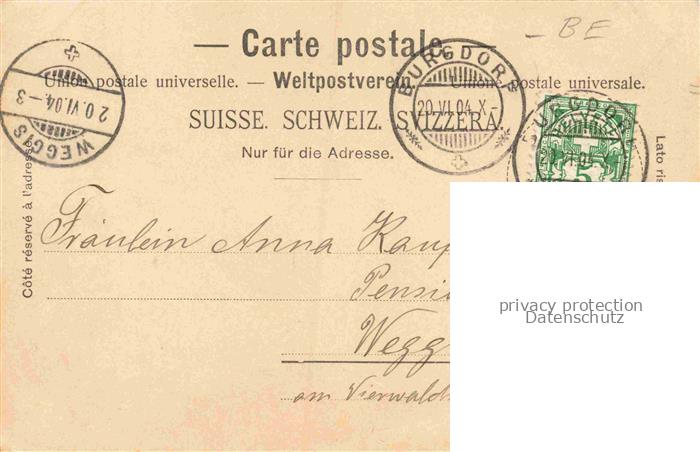 BE
— Carte postale. —
Union postale universelle. — Weltpostverein. — Unione postale universale.
SUISSE. SCHWEIZ. SVIZZERA.
Nur für die Adresse.
Côté réservé à l'adresse
Lato ris
WEGGIS
20.VI.04-3
BURGDORF
20.VI.04.X-
BURGDORF
HELVETIA
5
Fräulein Anna Kaup
Pensio
Wegg
am Vierwald
privacy protection
Datenschutz